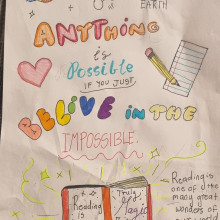 EARTH
ANYTHING
is
Possible
IF YOU JUST
BELIVE IN THE
IMPOSSIBLE
Reading is
one of the
many great
wonders of
Reading
is
Truly
Magic